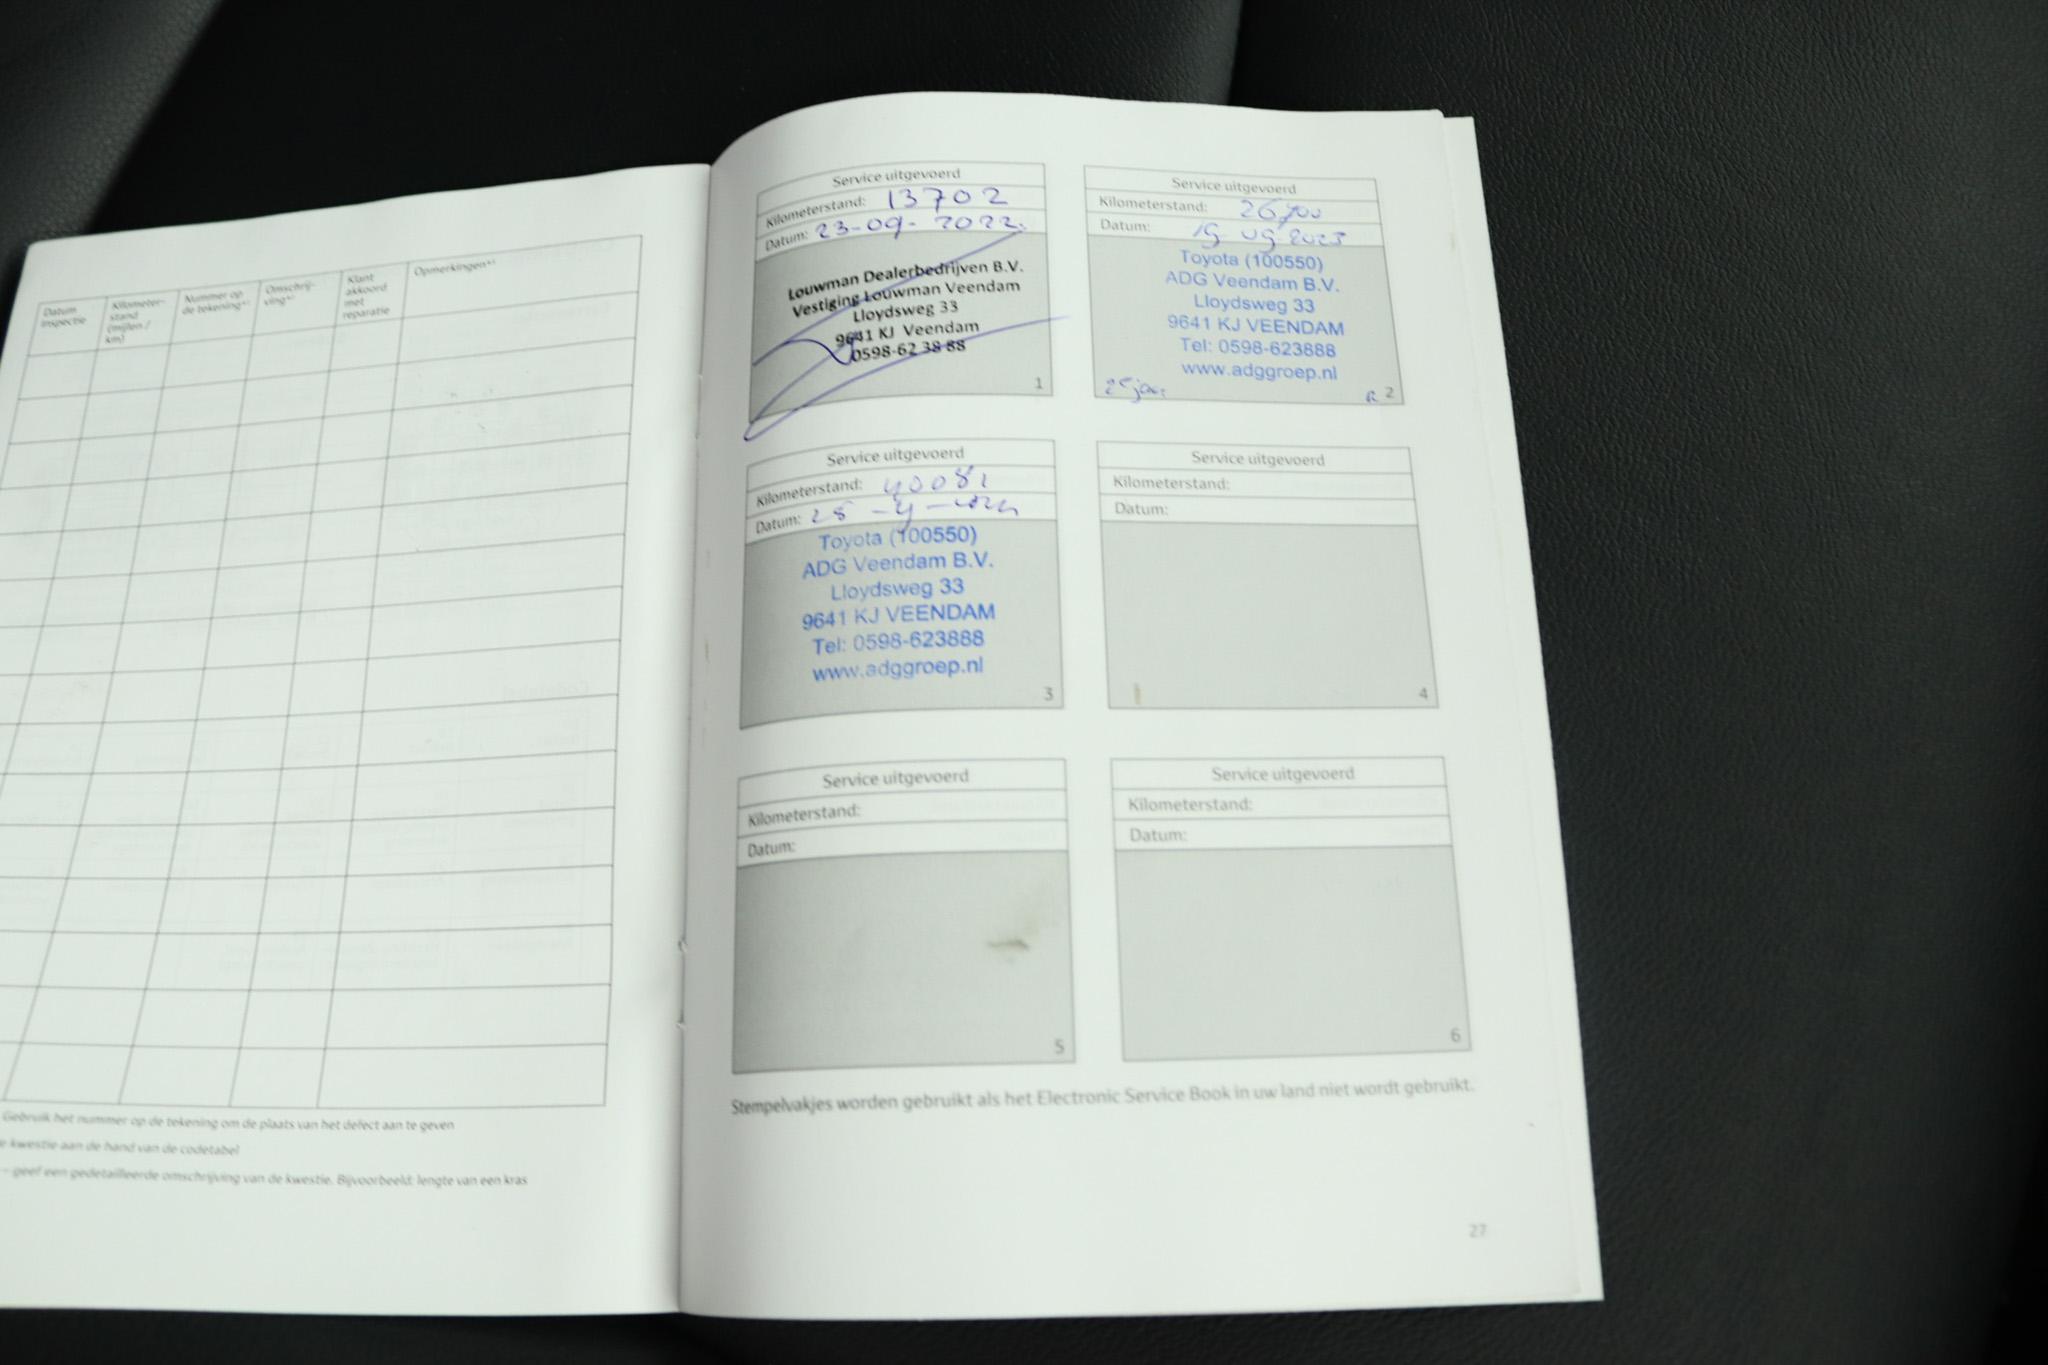 Datum inspectie
Kilometer-stand (mijlen / km)
Nummer op de tekening*¹
Omschrij-ving*²
Klant akkoord met reparatie
Opmerkingen*³
Gebruik het nummer op de tekening om de plaats van het defect aan te geven
kwestie aan de hand van de codetabel
– geef een gedetailleerde omschrijving van de kwestie. Bijvoorbeeld: lengte van een kras
Service uitgevoerd
Kilometerstand: 13702
Datum: 23-09-2022
Louwman Dealerbedrijven B.V.
Vestiging Louwman Veendam
Lloydsweg 33
9641 KJ Veendam
0598-62 38 88
1
Service uitgevoerd
Kilometerstand:
Datum: 19-09-2023
Toyota (100550)
ADG Veendam B.V.
Lloydsweg 33
9641 KJ VEENDAM
Tel: 0598-623888
www.adggroep.nl
2
Service uitgevoerd
Kilometerstand: 40081
Datum:
Toyota (100550)
ADG Veendam B.V.
Lloydsweg 33
9641 KJ VEENDAM
Tel: 0598-623888
www.adggroep.nl
3
Service uitgevoerd
Kilometerstand:
Datum:
4
Service uitgevoerd
Kilometerstand:
Datum:
5
Service uitgevoerd
Kilometerstand:
Datum:
6
Stempelvakjes worden gebruikt als het Electronic Service Book in uw land niet wordt gebruikt.
27